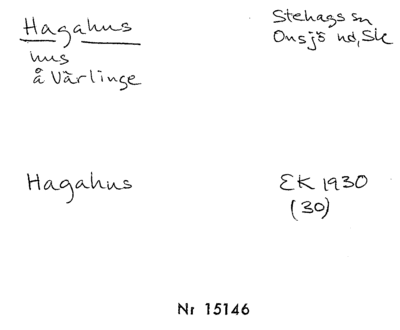 Hagahus
Stehags sn
Onsjö hd, Sk
hus
å Värlinge
Hagahus
EK 1930
(30)
Nr 15146